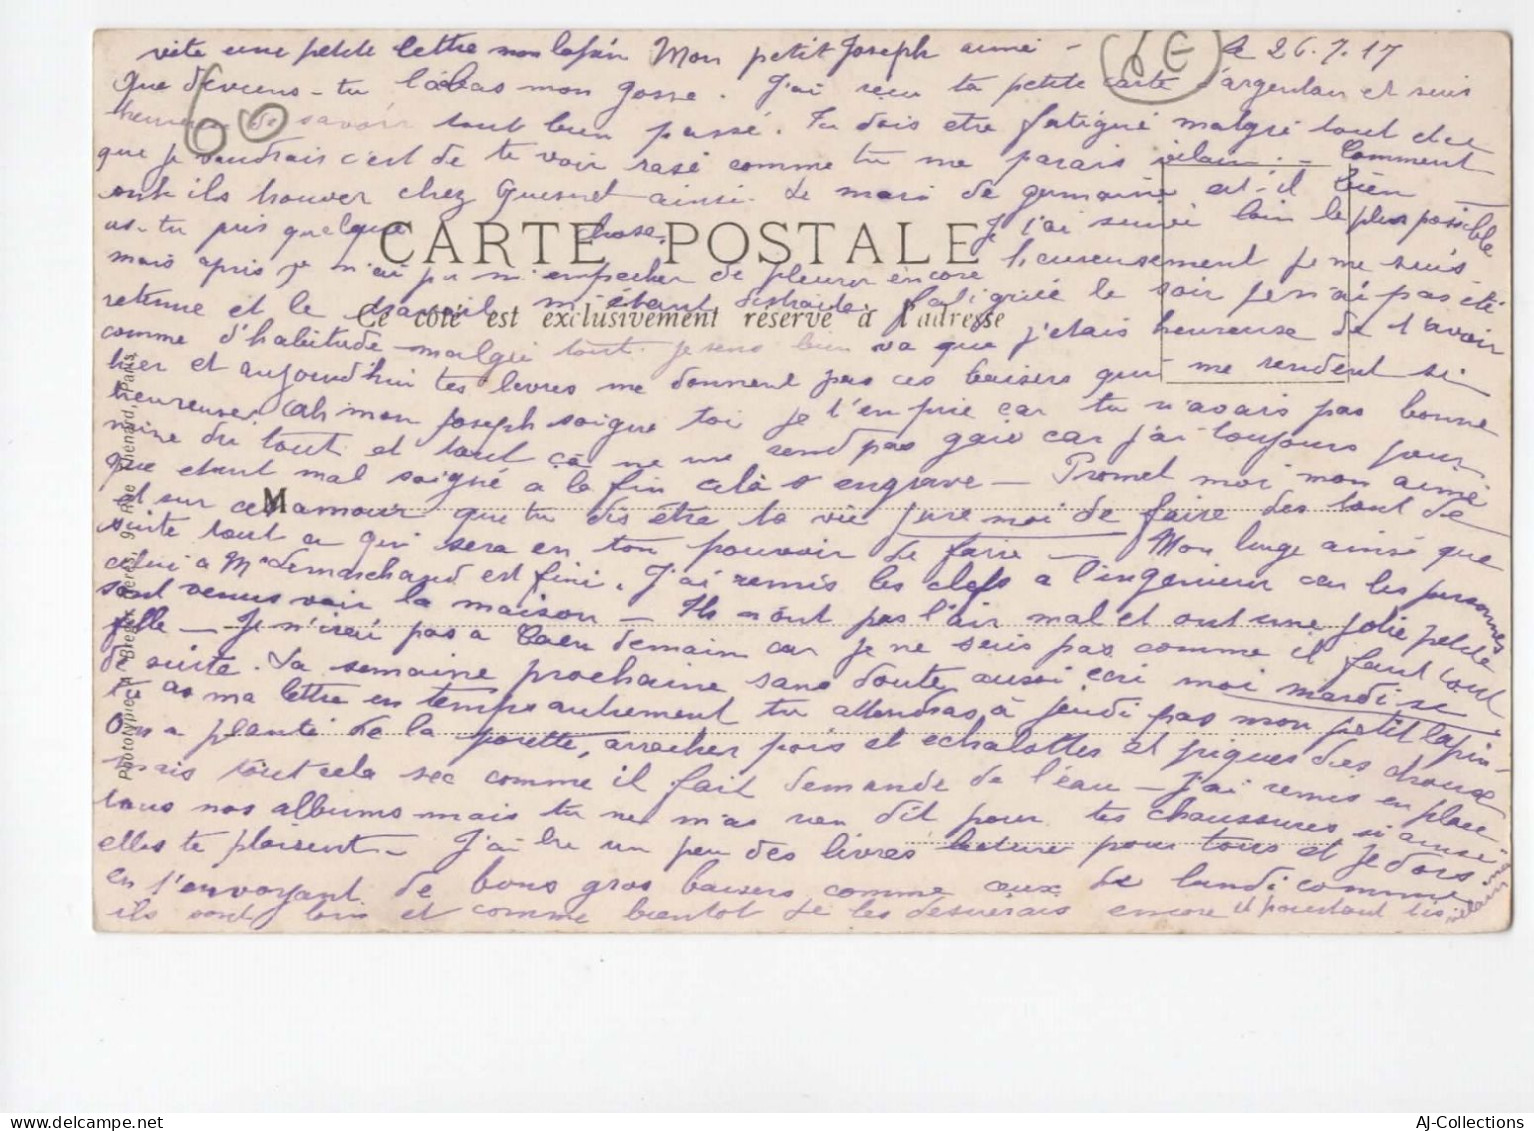 vite une petite lettre mon lapin Mon petit Joseph aimé - le 26.7.17
Que deviens-tu làbas mon gosse. J'ai reçu ta petite carte d'argentan et suis
de savoir tout bien passé. Tu dois etre fatigué malgré tout et ce
que je voudrais c'est de te voir rasé comme tu me parais vilain. - Comment
ont ils trouver chez Guesnet ainsi. Le mari de germaine est-il bien
as-tu pris quelque chose. Je t'ai suivi loin le plus possible
CARTE POSTALE
mais après je n'ai pu m'empecher de pleurer encore heureusement je me suis
retenue et le travail m'étant distraite fatiguée le soir je n'ai pas été
Ce côté est exclusivement réservé à l'adresse
comme d'habitude malgré tout je sens bien va que j'etais heureuse de t'avoir
hier et aujourd'hui tes levres me donnent pas ces baisers qui me rendent si
heureuse, ah mon Joseph soigne toi je t'en prie car tu n'avais pas bonne
mine du tout et tout ça ne me rend pas gaie car j'ai toujours peur
que etant mal soigné a la fin celà s'engrave - Promet moi mon aimé
et sur cet amour que tu dis être ta vie jure moi de faire des tout de
M
suite tout ce qui sera en ton pouvoir de faire - Mon linge ainsi que
celui a Me Lemarchand est fini. J'ai remis les clefs a l'ingenieur car les personnes
sont venus voir la maison - Ils n'ont pas l'air mal et ont une jolie petite
fille - Je n'irai pas a Caen demain car je ne suis pas comme il faut tout
de suite. La semaine prochaine sans doute aussi ecri moi mardi si
tu as ma lettre en temps autrement tu attendras à jeudi pas mon petit lapin -
On a planté de la porette, arracher pois et echalottes et piques des choux
mais tout cela sec comme il fait demande de l'eau - J'ai remis en place
tous nos albums mais tu ne m'as rien dit pour tes chaussures si ainsi
elles te plaisent - J'ai lu un peu des livres lecture pour tous et je dors
en t'envoyant de bons gros baisers comme ceux de lundi comme
ils sont loin et comme bientot je les desirerais encore et pourtant
vilain
Phototypie Frères, 9, Rue Thénard, Paris
AJ-Collections